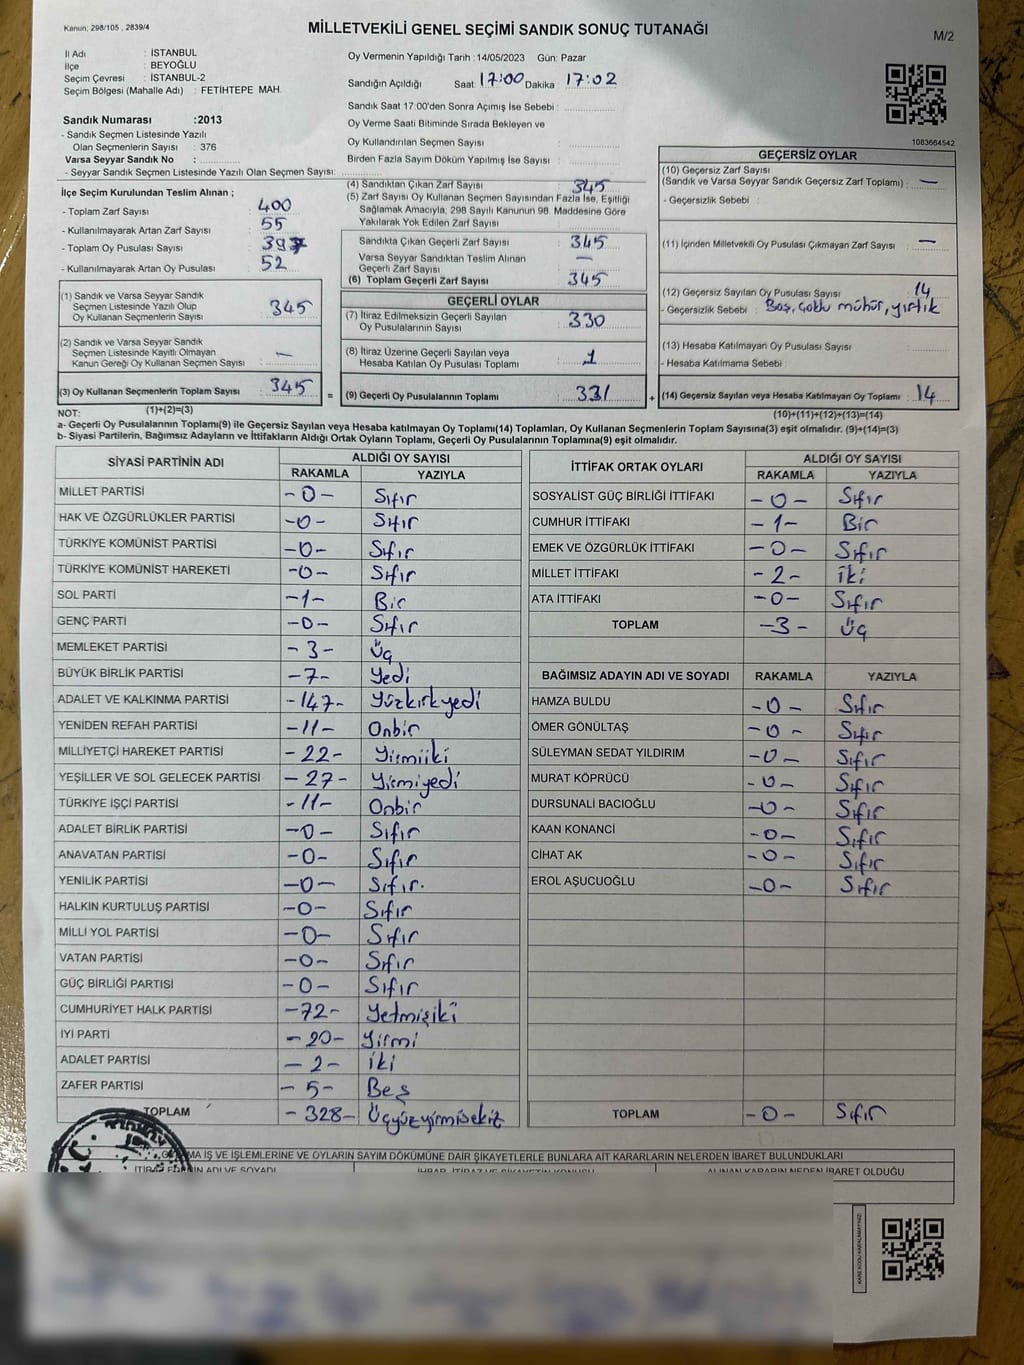 Kanun; 298/105 , 2839/4
MİLLETVEKİLİ GENEL SEÇİMİ SANDIK SONUÇ TUTANAĞI
M/2
İl Adı : İSTANBUL
İlçe : BEYOĞLU
Seçim Çevresi : İSTANBUL-2
Seçim Bölgesi (Mahalle Adı) : FETİHTEPE MAH.
Oy Vermenin Yapıldığı Tarih :14/05/2023 Gün: Pazar
Sandığın Açıldığı Saat 17:00 Dakika 17:02
Sandık Saat 17:00'den Sonra Açımış İse Sebebi :
Oy Verme Saati Bitiminde Sırada Bekleyen ve
Oy Kullandırılan Seçmen Sayısı :
Birden Fazla Sayım Döküm Yapılmış İse Sayısı :
Sandık Numarası :2013
- Sandık Seçmen Listesinde Yazılı
Olan Seçmenlerin Sayısı : 376
Varsa Seyyar Sandık No :
- Seyyar Sandık Seçmen Listesinde Yazılı Olan Seçmen Sayısı:
1083664542
İlçe Seçim Kurulundan Teslim Alınan ;
- Toplam Zarf Sayısı : 400
- Kullanılmayarak Artan Zarf Sayısı : 55
- Toplam Oy Pusulası Sayısı : 397
- Kullanılmayarak Artan Oy Pusulası : 52
(1) Sandık ve Varsa Seyyar Sandık
Seçmen Listesinde Yazılı Olup
Oy Kullanan Seçmenlerin Sayısı : 345
(2) Sandık ve Varsa Seyyar Sandık
Seçmen Listesinde Kayıtlı Olmayan
Kanun Gereği Oy Kullanan Seçmen Sayısı : —
(3) Oy Kullanan Seçmenlerin Toplam Sayısı : 345
(1)+(2)=(3)
=
(4) Sandıktan Çıkan Zarf Sayısı : 345
(5) Zarf Sayısı Oy Kullanan Seçmen Sayısından Fazla İse, Eşitliği
Sağlamak Amacıyla, 298 Sayılı Kanunun 98. Maddesine Göre
Yakılarak Yok Edilen Zarf Sayısı :
Sandıkta Çıkan Geçerli Zarf Sayısı : 345
Varsa Seyyar Sandıktan Teslim Alınan
Geçerli Zarf Sayısı : —
(6) Toplam Geçerli Zarf Sayısı : 345
GEÇERLİ OYLAR
(7) İtiraz Edilmeksizin Geçerli Sayılan
Oy Pusulalarının Sayısı : 330
(8) İtiraz Üzerine Geçerli Sayılan veya
Hesaba Katılan Oy Pusulası Toplamı : 1
(9) Geçerli Oy Pusulalarının Toplamı : 331
+
GEÇERSİZ OYLAR
(10) Geçersiz Zarf Sayısı
(Sandık ve Varsa Seyyar Sandık Geçersiz Zarf Toplamı) : —
- Geçersizlik Sebebi :
(11) İçinden Milletvekili Oy Pusulası Çıkmayan Zarf Sayısı : —
(12) Geçersiz Sayılan Oy Pusulası Sayısı : 14
- Geçersizlik Sebebi : Boş, çoklu mühür, yırtık
(13) Hesaba Katılmayan Oy Pusulası Sayısı :
- Hesaba Katılmama Sebebi :
(14) Geçersiz Sayılan veya Hesaba Katılmayan Oy Toplamı : 14
(10)+(11)+(12)+(13)=(14)
NOT:
a- Geçerli Oy Pusulalarının Toplamı(9) ile Geçersiz Sayılan veya Hesaba katılmayan Oy Toplamı(14) Toplamları, Oy Kullanan Seçmenlerin Toplam Sayısına(3) eşit olmalıdır. (9)+(14)=(3)
b- Siyasi Partilerin, Bağımsız Adayların ve İttifakların Aldığı Ortak Oyların Toplamı, Geçerli Oy Pusulalarının Toplamına(9) eşit olmalıdır.
SİYASİ PARTİNİN ADI ALDIĞI OY SAYISI
RAKAMLA YAZIYLA
MİLLET PARTİSİ -0- Sıfır
HAK VE ÖZGÜRLÜKLER PARTİSİ -0- Sıfır
TÜRKİYE KOMÜNİST PARTİSİ -0- Sıfır
TÜRKİYE KOMÜNİST HAREKETİ -0- Sıfır
SOL PARTİ -1- Bir
GENÇ PARTİ -0- Sıfır
MEMLEKET PARTİSİ -3- Üç
BÜYÜK BİRLİK PARTİSİ -7- Yedi
ADALET VE KALKINMA PARTİSİ -147- Yüzkırkyedi
YENİDEN REFAH PARTİSİ -11- Onbir
MİLLİYETÇİ HAREKET PARTİSİ -22- Yirmiiki
YEŞİLLER VE SOL GELECEK PARTİSİ -27- Yirmiyedi
TÜRKİYE İŞÇİ PARTİSİ -11- Onbir
ADALET BİRLİK PARTİSİ -0- Sıfır
ANAVATAN PARTİSİ -0- Sıfır
YENİLİK PARTİSİ -0- Sıfır.
HALKIN KURTULUŞ PARTİSİ -0- Sıfır
MİLLİ YOL PARTİSİ -0- Sıfır
VATAN PARTİSİ -0- Sıfır
GÜÇ BİRLİĞİ PARTİSİ -0- Sıfır
CUMHURİYET HALK PARTİSİ -72- Yetmişiki
İYİ PARTİ -20- Yirmi
ADALET PARTİSİ -2- iki
ZAFER PARTİSİ -5- Beş
TOPLAM -328- Üçyüzyirmisekiz
İTTİFAK ORTAK OYLARI ALDIĞI OY SAYISI
RAKAMLA YAZIYLA
SOSYALİST GÜÇ BİRLİĞİ İTTİFAKI -0- Sıfır
CUMHUR İTTİFAKI -1- Bir
EMEK VE ÖZGÜRLÜK İTTİFAKI -0- Sıfır
MİLLET İTTİFAKI -2- iki
ATA İTTİFAKI -0- Sıfır
TOPLAM -3- Üç
BAĞIMSIZ ADAYIN ADI VE SOYADI RAKAMLA YAZIYLA
HAMZA BULDU -0- Sıfır
ÖMER GÖNÜLTAŞ -0- Sıfır
SÜLEYMAN SEDAT YILDIRIM -0- Sıfır
MURAT KÖPRÜCÜ -0- Sıfır
DURSUNALİ BACIOĞLU -0- Sıfır
KAAN KONANCİ -0- Sıfır
CİHAT AK -0- Sıfır
EROL AŞUCUOĞLU -0- Sıfır
TOPLAM -0- Sıfır
İŞ VE İŞLEMLERİNE VE OYLARIN SAYIM DÖKÜMÜNE DAİR ŞİKAYETLERLE BUNLARA AİT KARARLARIN NELERDEN İBARET BULUNDUKLARI
ADI VE SOYADI İHBAR, İTİRAZ VE ŞİKAYETİN KONUSU ALINAN KARARIN NEDEN İBARET OLDUĞU